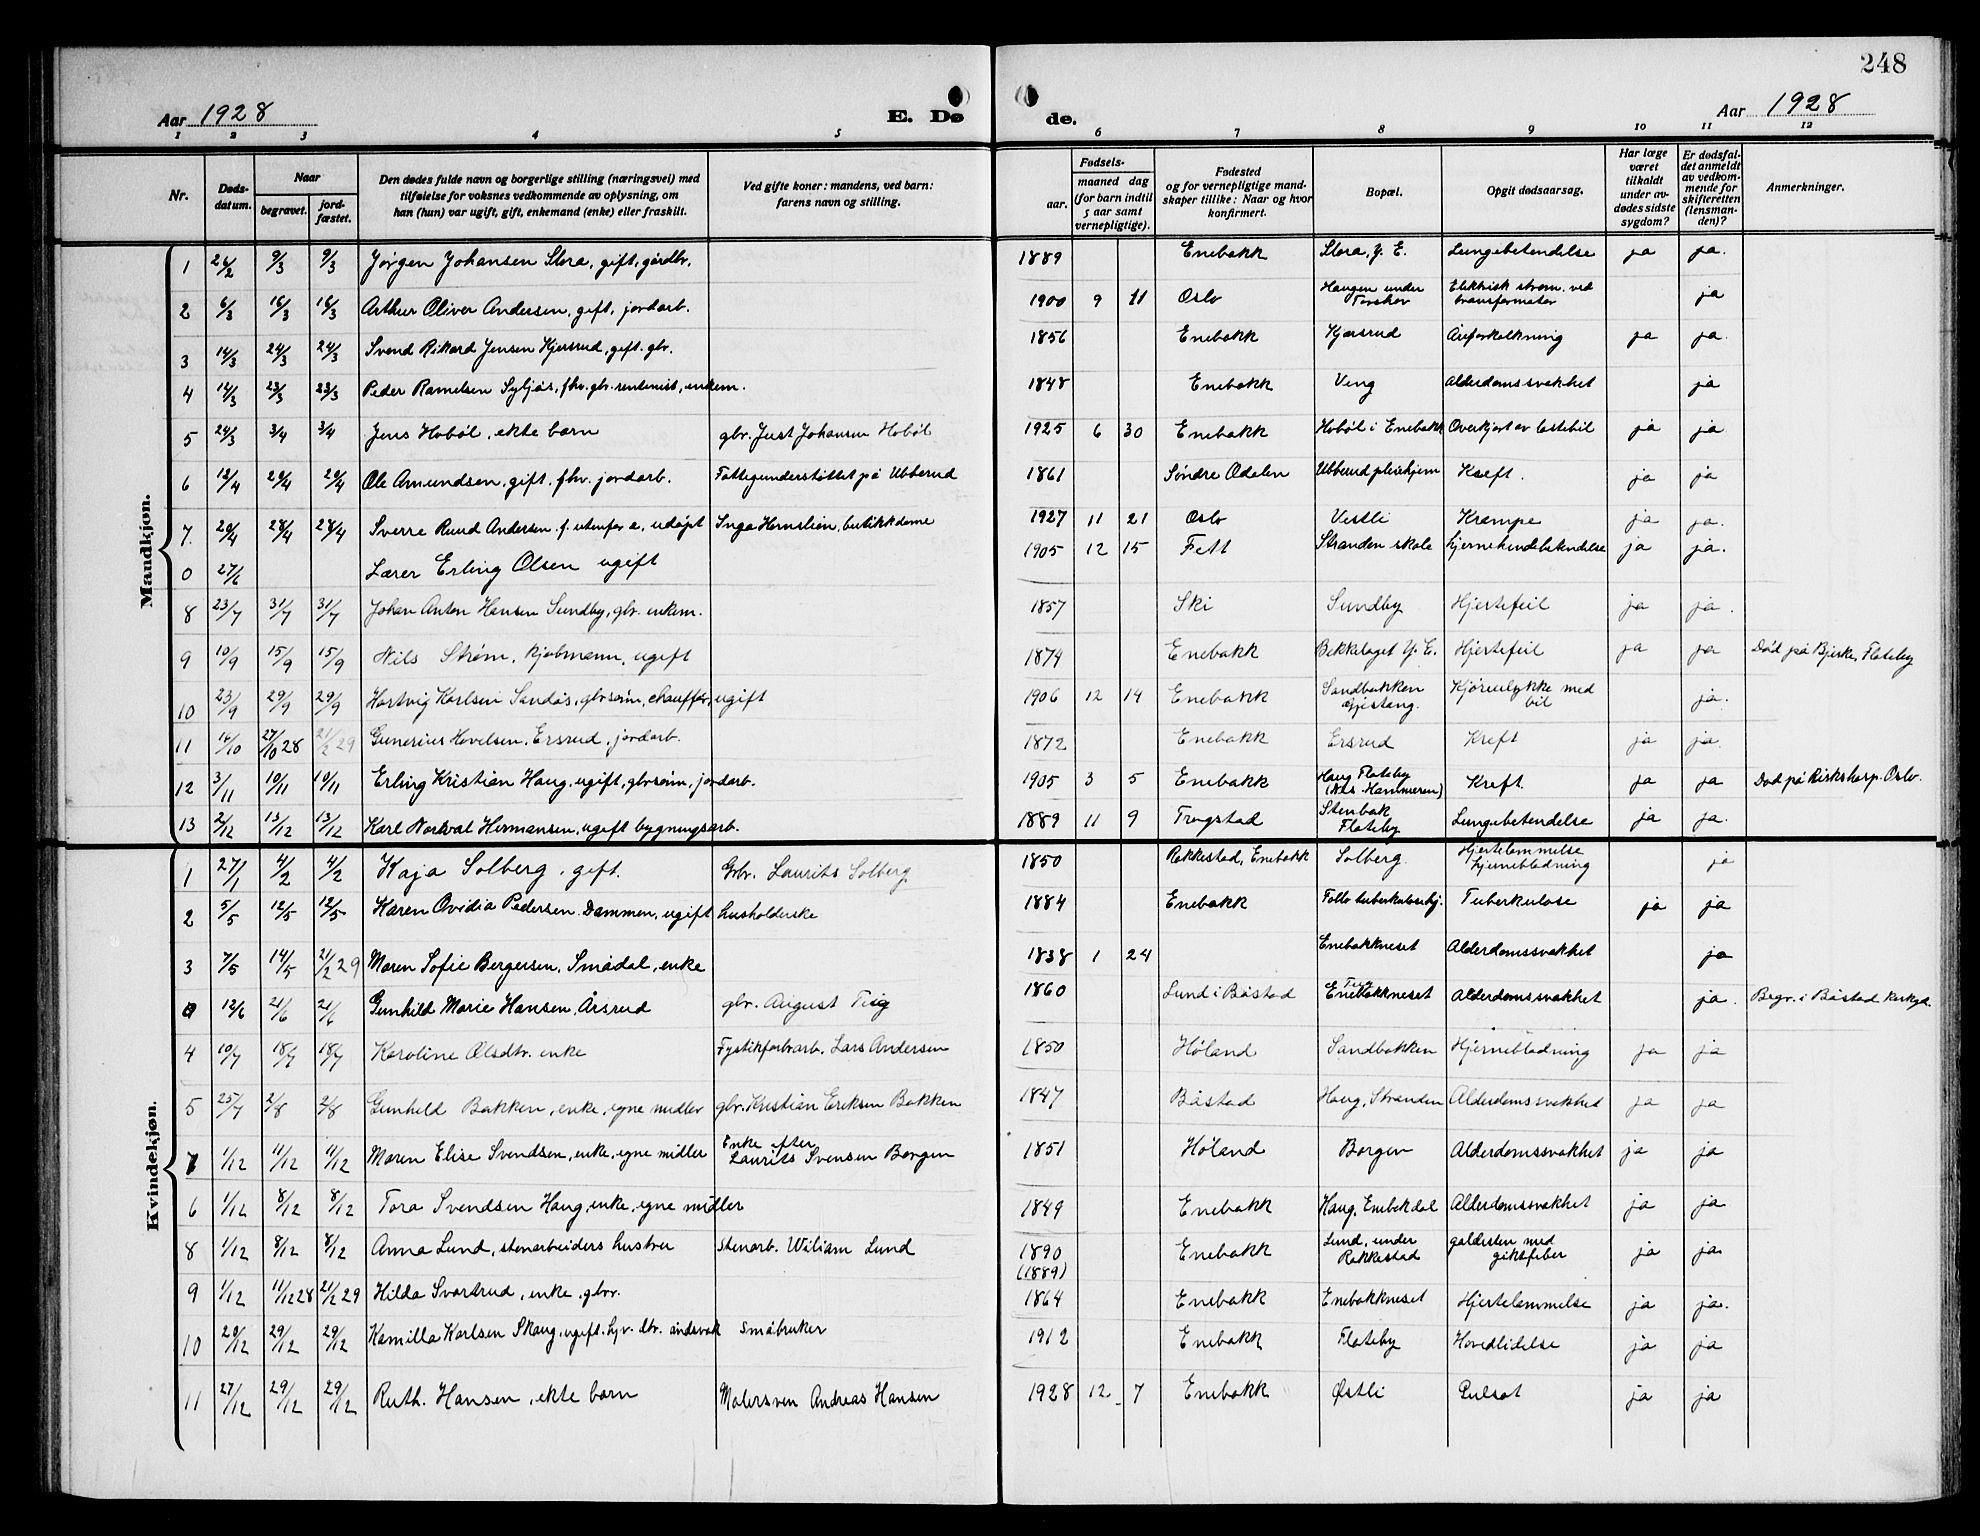 248
Aar 1928 E. Dø de. Aar 1928
1 2 3 4 5 6 7 8 9 10 11 12
Nr. Døds-datum. Naar begravet. jord-fæstet. Den dødes fulde navn og borgerlige stilling (næringsvei) med tilføielse for voksnes vedkommende av oplysning, om han (hun) var ugift, gift, enkemand (enke) eller fraskilt. Ved gifte koner: mandens, ved barn: farens navn og stilling. Fødsels- aar. maaned dag (for barn indtil 5 aar samt vernepligtige). Fødested og for vernepligtige mand-skaper tillike: Naar og hvor konfirmert. Bopæl. Opgit dødsaarsag. Har læge været tilkaldt under av-dødes sidste sygdom? Er dødsfal-det anmeldt av vedkom-mende for skifteretten (lensman-den)? Anmerkninger.
Mandkjøn.
1 26/2 9/3 9/3 Jørgen Johansen Stora, gift, gårdbr. 1889 Enebakk Stora, Y. E. Lungebetendelse ja ja.
2 6/3 16/3 16/3 Arthur Oliver Andersen, gift, jordarb. 1900 9 11 Oslo Haugen under Torshov Elektrisk strøm ved transformator ja
3 14/3 24/3 24/3 Svend Rikard Jensen Kjersrud, gift. gbr. 1856 Enebakk Kjersrud Åreforkalkning ja ja.
4 14/3 23/3 23/3 Peder Ramelsen, fhv. gbr. rentenist, enkem. 1848 Enebakk Veng Alderdomssvakhet ja
5 24/3 3/4 3/4 Jens Hobøl, ekte barn gbr. Just Johansen Hobøl 1925 6 30 Enebakk Hobøl i Enebakk Overkjørt av lastebil ja ja
6 12/4 20/4 20/4 Ole Amundsen, gift. fhv. jordarb. Fattigunderstøttet på Ubberud 1861 Søndre Odalen Ubberud pleiehjem Kreft. ja ja
7. 20/4 28/4 28/4 Sverre Ruud Andersen. f. utenfor e., udøpt Inga Hornslien, butikkdame 1927 11 21 Oslo Vestli Krampe ja ja.
0 27/6 Lærer Erling Olsen ugift 1905 12 15 Fett Stranden skole hjernehindebetendelse ja ja.
8 23/7 31/7 31/7 Johan Anton Hansen Sundby, gbr. enkem. 1857 Ski Sundby Hjertefeil ja ja.
9 10/9 15/9 15/9 Nils Strøm, kjøbmann, ugift 1874 Enebakk Bekkelaget Y. E. Hjertefeil ja ja Død på Bjerke, Flateby
10 23/9 29/9 29/9 Hartvig Karlsen Sandås, gbrsønn, chauffør, ugift 1906 12 14 Enebakk Sandbakken Gjestang. Kjøreulykke med bil ja.
11 14/10 27/10 28 21/2 29 Gunerius Hovelsen, Ersrud, jordarb. 1872 Enebakk Ersrud Kreft ja ja.
12 3/11 10/11 10/11 Erling Kristian Haug, ugift, gbrsønn, jordarb. 1905 3 5 Enebakk Haug Flateby (Hammeren) Kreft. ja ja Død på Rikshosp. Oslo.
13 2/12 13/12 13/12 Karl Norkval Hermansen, ugift bygningsarb. 1889 11 9 Trøgstad Stenbak Flateby Lungebetendelse ja ja.
Kvindekjøn.
1 27/1 4/2 4/2 Kaja Solberg, gift. Gbr. Laurits Solberg 1850 Rakkestad, Enebakk Solberg. Hjertelammelse hjerneblødning ja
2 5/5 12/5 12/5 Karen Ovidia Pedersen Dammen, ugift husholderske 1884 Enebakk Follo tuberkulosehj. Tuberkulose ja ja
3 7/5 14/5 21/2 29 Maren Sofie Bergersen, Smådal, enke 1838 1 24 Enebakkneset Alderdomssvakhet ja
0 12/6 21/6 21/6 Gunhild Marie Hansen, Årsrud gbr. August Tiig 1860 Lund i Båstad Enebakkneset Alderdomssvakhet ja. Begr. i Båstad kirkegd.
4 10/7 18/7 18/7 Karoline Olsdtr. enke Fystikforbrarb. Lars Andersen 1850 Høland Sandbakken Hjerneblødning ja ja
5 25/7 2/8 2/8 Gunhild Bakken, enke, egne midler gbr. Kristian Eriksen Bakken 1847 Båstad Haug, Stranden Alderdomssvakhet ja ja
7 1/12 11/12 11/12 Maren Elise Svendsen, enke, egne midler Enke efter Laurits Svensen Borgen 1851 Høland Borgen Alderdomssvakhet ja ja
6 1/12 8/12 8/12 Tora Svendsen Haug, enke, egne midler 1849 Enebakk Haug, Enebakdal Alderdomssvakhet ja ja
8 1/12 8/12 8/12 Anna Lund, stenarbeiders hustru stenarb. Wiliam Lund 1890 (1889) Enebakk Lund, under Rakkestad galdesten med giktfeber ja ja.
9 1/12 11/12 28 21/2 29 Hilda Svartrud, enke, gbrv. 1864 Enebakk Enebakkneset Hjertelammelse ja ja.
10 20/12 29/12 29/12 Kamilla Karlsen Skaug, ugift. hjv. dtr. åndsvak småbruker 1912 Enebakk Flateby Hovedlidelse ja ja
11 27/12 29/12 29/12 Ruth. Hansen, ekte barn Malersven Andreas Hansen 1928 12 7 Enebakk Østli Pulsot ja ja